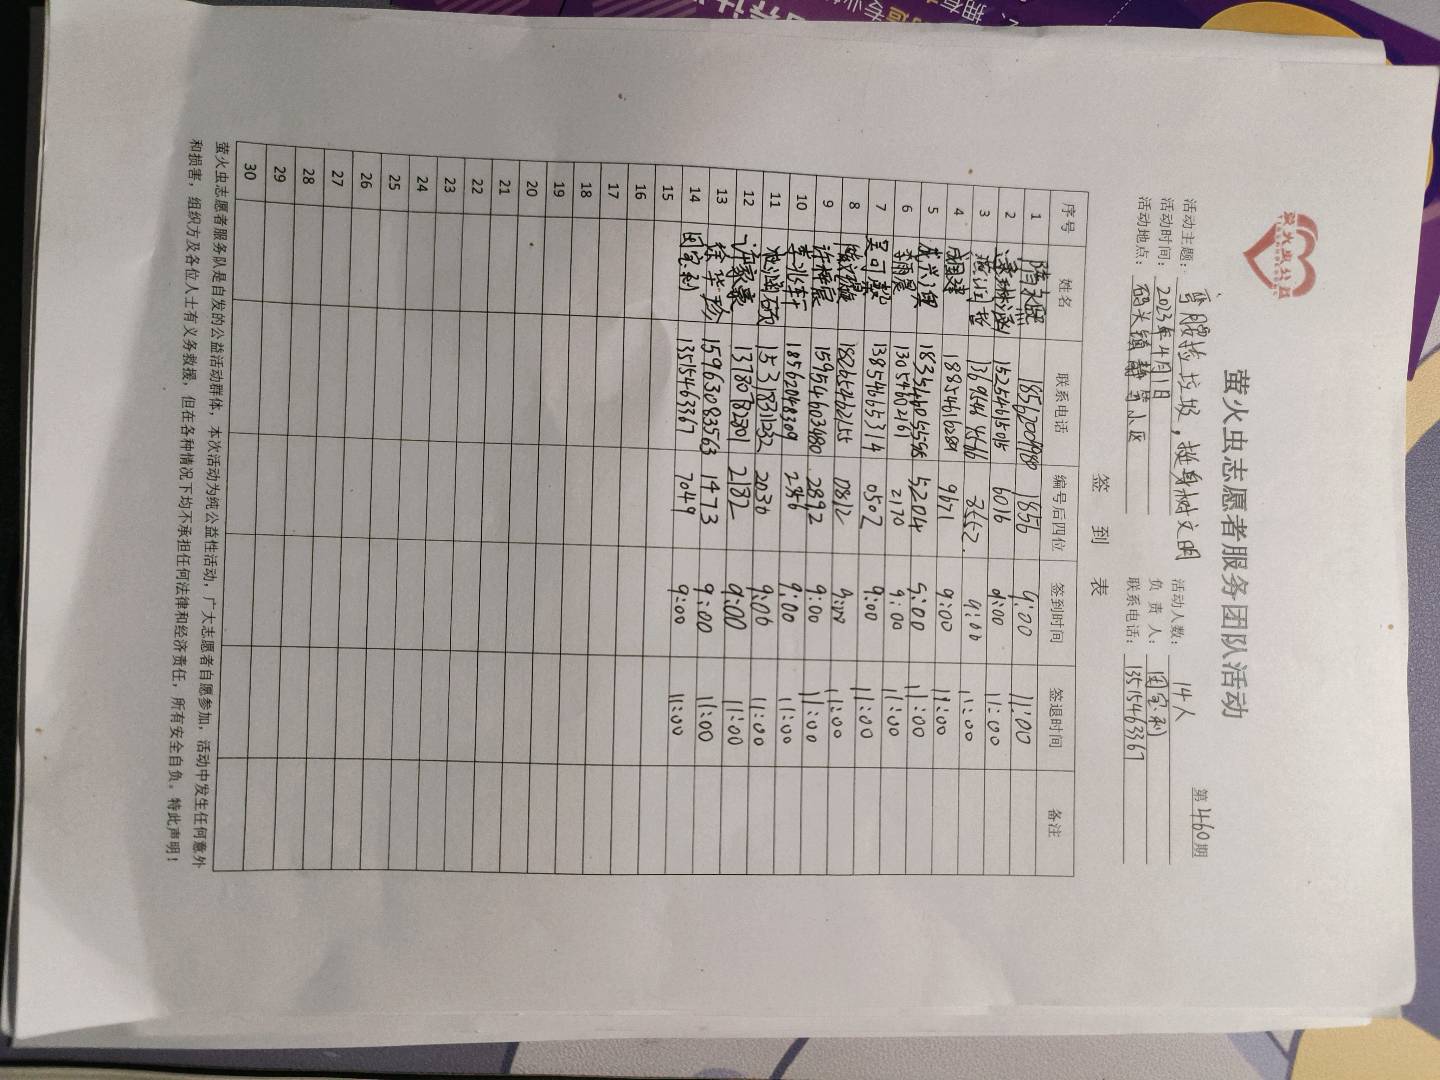 萤火虫公益
萤火虫志愿者服务团队活动
第460期
活动主题：弯腰捡垃圾，挺身树文明 活动人数：14人
活动时间：2023年4月1日 负责人：闵宝利
活动地点：码头镇静苑小区 联系电话：13515463367
签到表
序号 姓名 联系电话 编号后四位 签到时间 签退时间 备注
1 1856 9:00 11:00
2 15254615015 6016 9:00 11:00
3 9:00 11:00
4 9671 9:00 11:00
5 5204 9:00 11:00
6 13054602161 2170 9:00 11:00
7 吴可馨 13854665314 0507 9:00 11:00
8 18265462155 0812 9:00 11:00
9 15954603480 2892 9:00 11:00
10 李兆轩 18562048309 9:00 11:00
11 15318331232 2030 9:00 11:00
12 许家豪 13780782301 2182 9:00 11:00
13 徐华珍 15963083563 1473 9:00 11:00
14 闵宝利 13515463367 7049 9:00 11:00
15
16
17
18
19
20
21
22
23
24
25
26
27
28
29
30
萤火虫志愿者服务队是自发的公益活动群体，本次活动为纯公益性活动，广大志愿者自愿参加，活动中发生任何意外
和损害，组织方及各位人士有义务救援，但在各种情况下均不承担任何法律和经济责任，所有安全自负。特此声明！